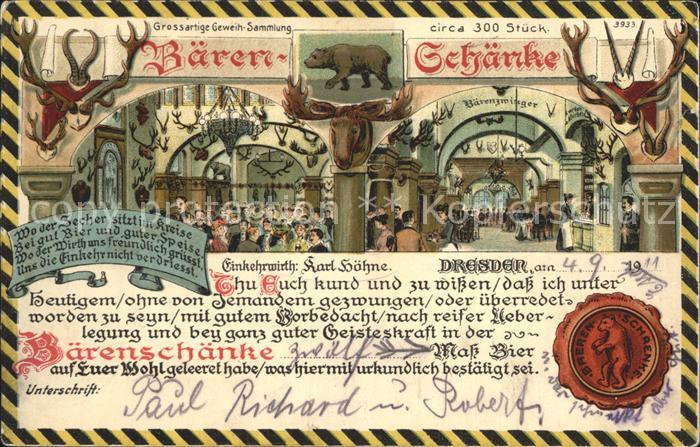 Grossartige Geweih-Sammlung circa 300 Stück.
3933
Bären-Schänke
Bärenzwinger
Wo der Zecher sitzt im Kreise
Bei gut Bier und guter Speise,
Wo der Wirth uns freundlich grüsst,
Uns die Einkehr nicht verdriesst.
Einkehrwirth: Karl Höhne. DRESDEN, am 4. 9. 1911
Thu Euch kund und zu wißen/daß ich unter
Heutigem/ohne von Jemandem gezwungen/oder überredet
worden zu seyn/mit gutem Vorbedacht/nach reifer Ueber-
legung und bey ganz guter Geisteskraft in der
Bärenschänke zwölf Maß Bier
auf Euer Wohl geleeret habe/was hiermit urkundlich bestätigt sei.
BÄREN-SCHÄNKE
Unterschrift: Paul Richard u. Robert
Copyright protection ** Kopierschutz